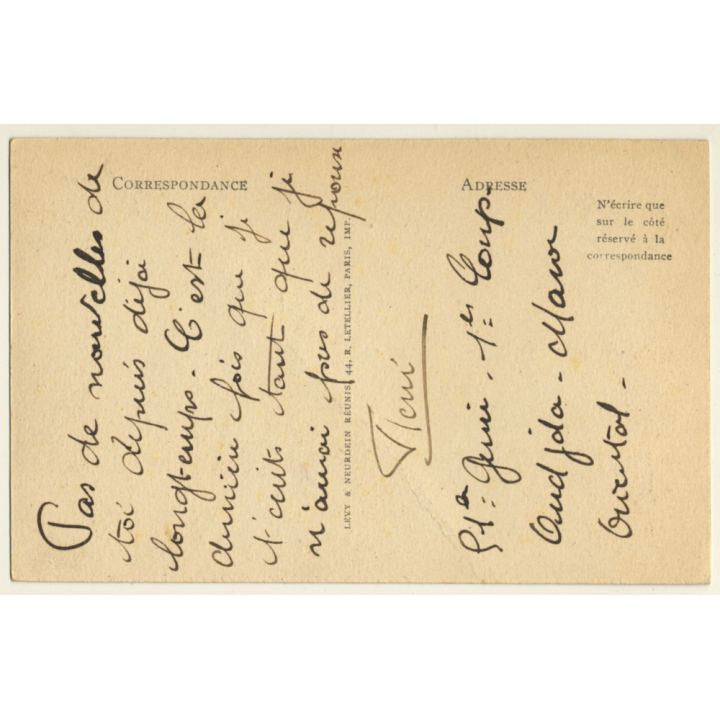 CORRESPONDANCE
Pas de nouvelles de
toi depuis déjà
longtemps. C'est la
dernière fois que je
t'écrits tant que je
n'aurai pas de réponse
LEVY & NEURDEIN RÉUNIS, 44, R. LETELLIER, PARIS, IMP.
ADRESSE
N'écrire que
sur le côté
réservé à la
correspondance
Génie
Oudjda - Maroc
Oriental -